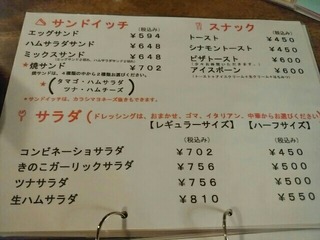 サンドイッチ
(税込み)
エッグサンド ¥594
ハムサラダサンド ¥648
ミックスサンド ¥648
★焼サンド ¥702
焼サンドは、4種類の中から2種類お選びください。
★(タマゴ・ハムサラダ
ツナ・ハムチーズ)
★サンドイッチは、カラシマヨネーズ抜きもできます。
スナック
(税込み)
トースト ¥450
シナモントースト ¥450
ピザトースト ¥600
アイスポーン ¥600
サラダ(ドレッシングは、おまかせ、ゴマ、イタリアン、中華からお選びください)
【レギュラーサイズ】 【ハーフサイズ】
(税込み) (税込み)
コンビネーショサラダ ¥702 ¥450
きのこガーリックサラダ ¥756 ¥500
ツナサラダ ¥756 ¥500
生ハムサラダ ¥810 ¥550